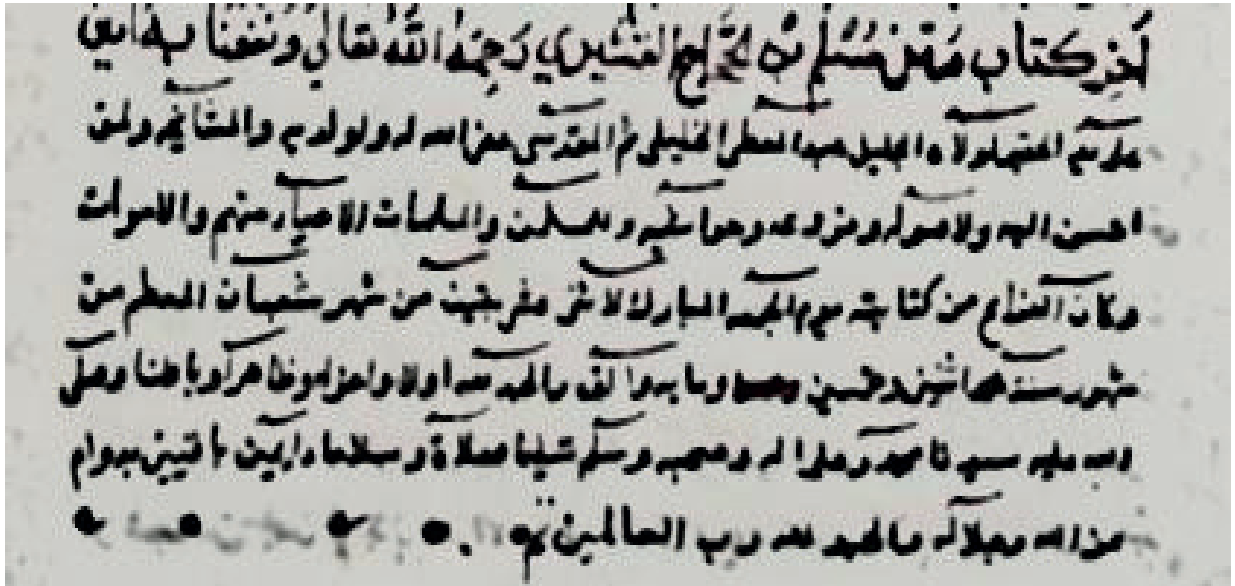 آخر كتاب متن مسلم بن الحجاج القشيري رحمه الله تعالى ونفعنا به آمين
على يد الفقير لمولاه الجليل عبد المعطي الخليلي ثم المقدسي غفر الله له ولوالديه والمشايخه ولمن
احسن اليه ولاصوله وفروعه وحواشيه وللمسلمين والمسلمات الاحياء منهم والاموات
وكان الفراغ من كتابته يوم الجمعه المبارك لاثني عشر بقيت من شهر شعبان المعظم من
شهور سنة اثنين وخمسين ومايه والف والحمد لله اولا واخرا وظاهرا وباطنا وصلى
الله على سيدنا محمد وعلى اله وصحبه وسلم تسليما صلاة وسلاما دايمين باقيين بدوام
عز الله وجلاله والحمد لله رب العالمين تم